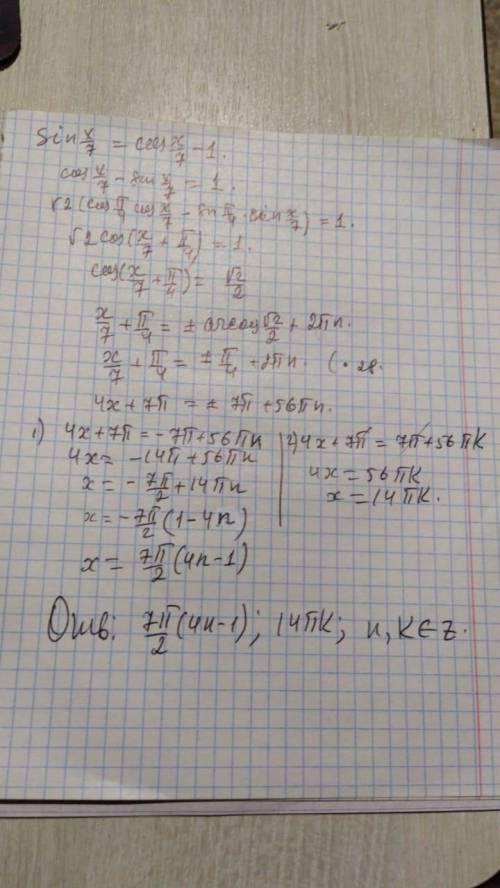 sin x/7 = cos x/7 - 1.
cos x/7 - sin x/7 = 1.
√2(cos π/4 cos x/7 - sin π/4 · sin x/7) = 1.
√2 cos(x/7 + π/4) = 1.
cos(x/7 + π/4) = √2/2
x/7 + π/4 = ± arccos √2/2 + 2πn.
x/7 + π/4 = ± π/4 + 2πn. (· 28.
4x + 7π = ± 7π + 56πn.
1) 4x + 7π = -7π + 56πn
4x = -14π + 56πn
x = - 7π/2 + 14πn
x = - 7π/2 (1 - 4n)
x = 7π/2 (4n - 1)
2) 4x + 7π = 7π + 56πk
4x = 56πk
x = 14πk.
Отв: 7π/2 (4n-1); 14πk; n, k ∈ Z.